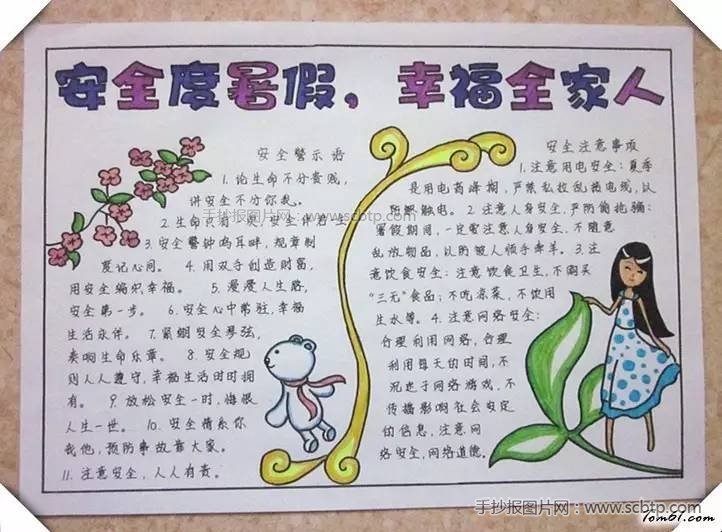 安全度暑假，幸福全家人
安全警示语
1. 论生命不分贵贱，
讲安全不分你我。
2 生命只有一次 安全伴君一生
3. 安全警钟鸣耳畔，规章制
度记心间。 4. 用双手创造财富，
用安全编织幸福。 5. 漫漫人生路，
安全第一步。 6. 安全心中常驻，幸福
生活永伴。 7. 紧绷安全琴弦，
奏响生命乐章。 8. 安全规
则人人遵守，幸福生活时时拥
有。 9. 放松安全一时，悔恨
人生一世。 10. 安全情系你
我他，预防事故靠大家。
11. 注意安全，人人有责。
安全注意事项
1. 注意用电安全：夏季
是用电高峰期，严禁私拉乱接电线，以
防触电。 2. 注意人身安全，严防偷抢骗：
暑假期间，一定要注意人身安全，不随意
乱放物品，以防被人顺手牵羊。 3. 注
意饮食安全：注意饮食卫生，不购买
“三无”食品；不吃凉菜，不饮用
生水等。 4. 注意网络安全：
合理利用网络，合理
利用每天的时间，不
沉迷于网络游戏，不
传播影响社会安定
的信息，注意网
络安全，网络道德。
手抄报图片网：www.scbtp.com
手抄报图片网：www.scbtp.com
Tom61.com